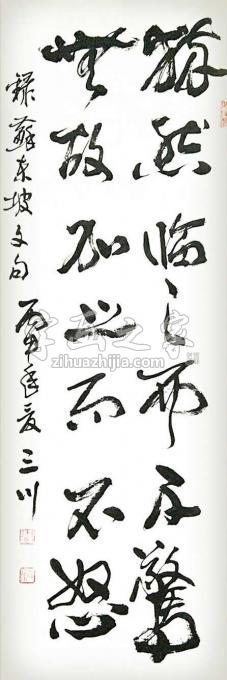 猝然臨之而不驚
無故加之而不怒
録蘇東坡文句 丙申年夏 三川
字画之家
zihuazhijia.com